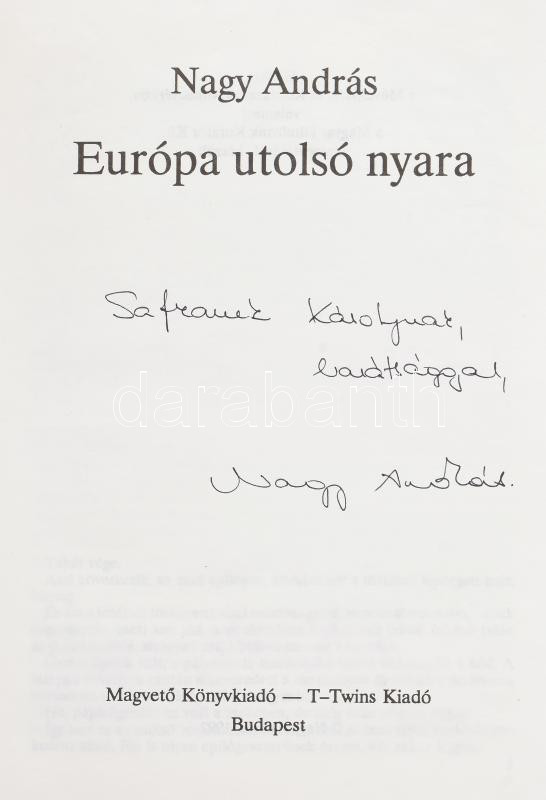 Nagy András
Európa utolsó nyara
Safranek Károlynak,
barátsággal,
darabanth
Nagy András.
Magvető Könyvkiadó — T–Twins Kiadó
Budapest